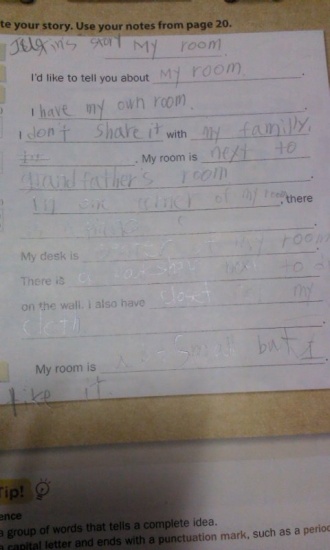 te your story. Use your notes from page 20.
story My room
I'd like to tell you about My room.
I have my own room.
I don't share it with my family,
. My room is next to
grandfather's room
In one corner of my room, there
.
My desk is of my room
There is a next to
on the wall. I also have closet in my
cloth.
My room is small but I
like it.
Tip!
ence
a group of words that tells a complete idea.
a capital letter and ends with a punctuation mark, such as a perio